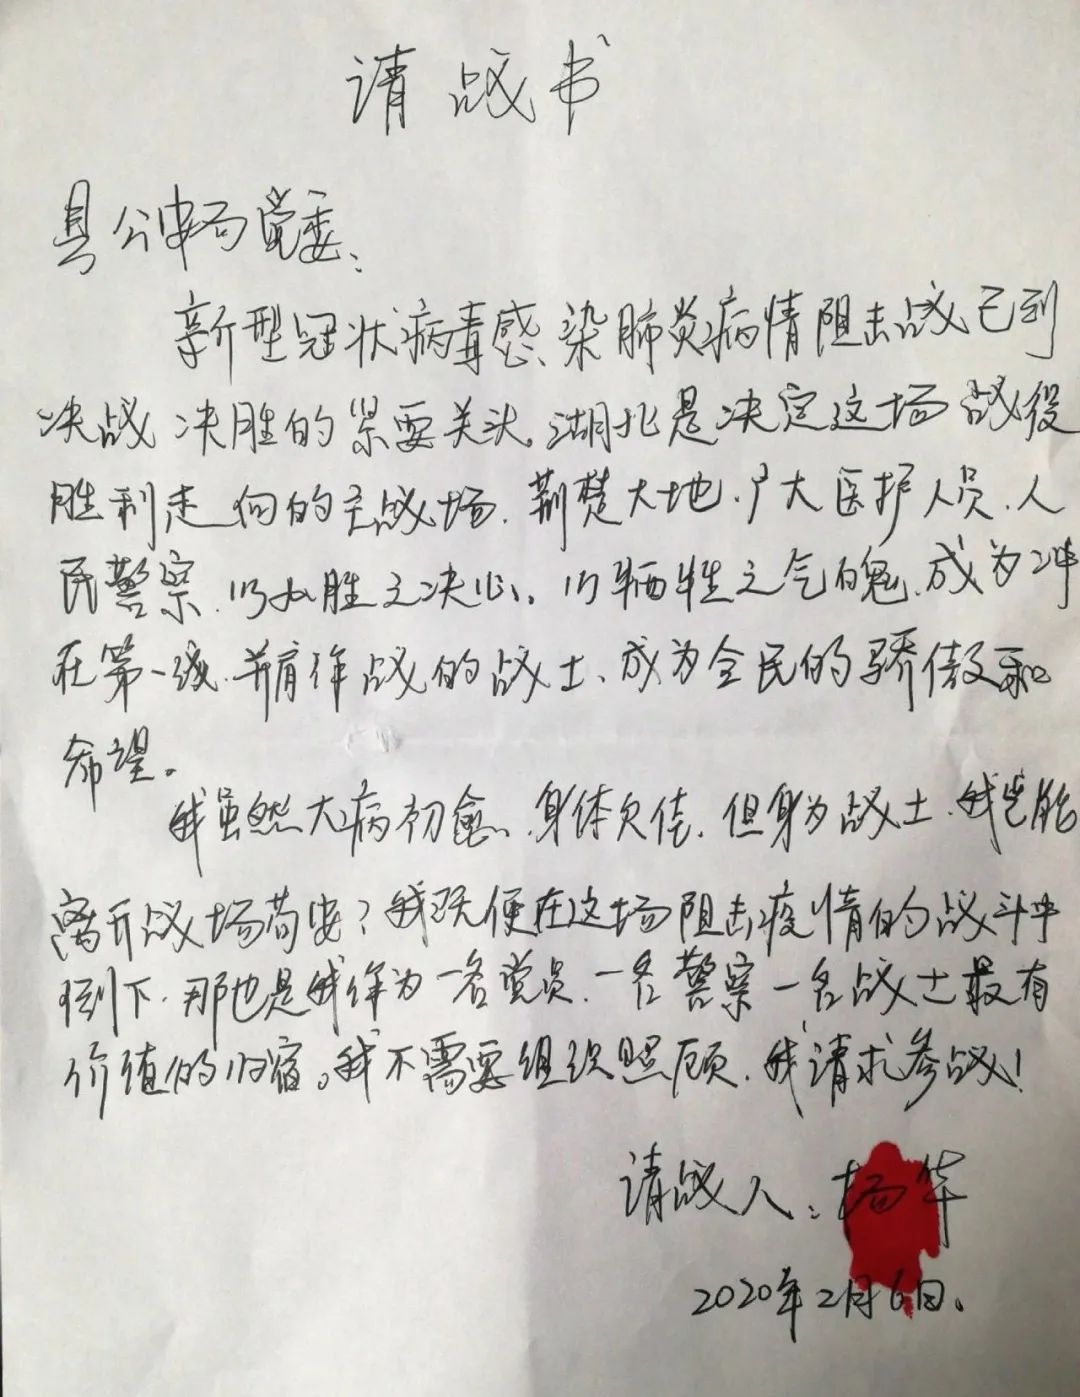 请战书
县公安局党委：
新型冠状病毒感染肺炎病情阻击战已到
决战决胜的紧要关头。湖北是决定这场战役
胜利走向的主战场，荆楚大地，广大医护人员、人
民警察，以必胜之决心，以牺牲之气魄，成为冲
在第一线，并肩作战的战士、成为全民的骄傲和
希望。
我虽然大病初愈，身体欠佳，但身为战士，我岂能
离开战场苟安？我既便在这场阻击疫情的战斗中
倒下，那也是我作为一名党员，一名警察一名战士最有
价值的归宿。我不需要组织照顾，我请求参战！
请战人：杨华
2020年2月6日。